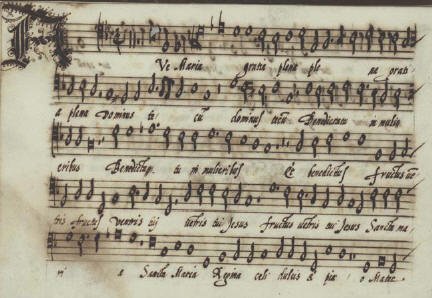 A
Ve Maria gratia plena ple na grati
a plena Dominus te cũ dominus tecũ Benedicta tu in mulie
eribus Benedicta tu in mulieribus Et benedictus fructus ve
tris fructus ventris tui ventris tui Jesus fructus ventris tui Jesus Sancta ma
ri a Sancta Maria Regina celi dulcis & pia o Mater